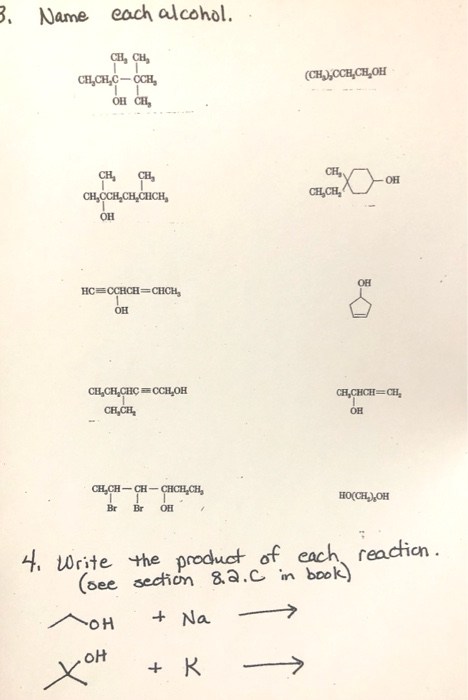 3. Name each alcohol.
CH₃ CH₃
CH₃CH₂C—CCH₃
OH CH₃
(CH₃)₃CCH₂CH₂OH
CH₃ CH₃
CH₃CCH₂CH₂CHCH₃
OH
CH₃
CH₃CH₂
OH
HC≡CCHCH=CHCH₃
OH
OH
CH₃CH₂CHC≡CCH₂OH
CH₂CH₃
CH₃CHCH=CH₂
OH
CH₃CH—CH—CHCH₂CH₃
Br Br OH
4. Write the product of each reaction.
(see section 8.2.C in book)
OH + Na →
OH + K →